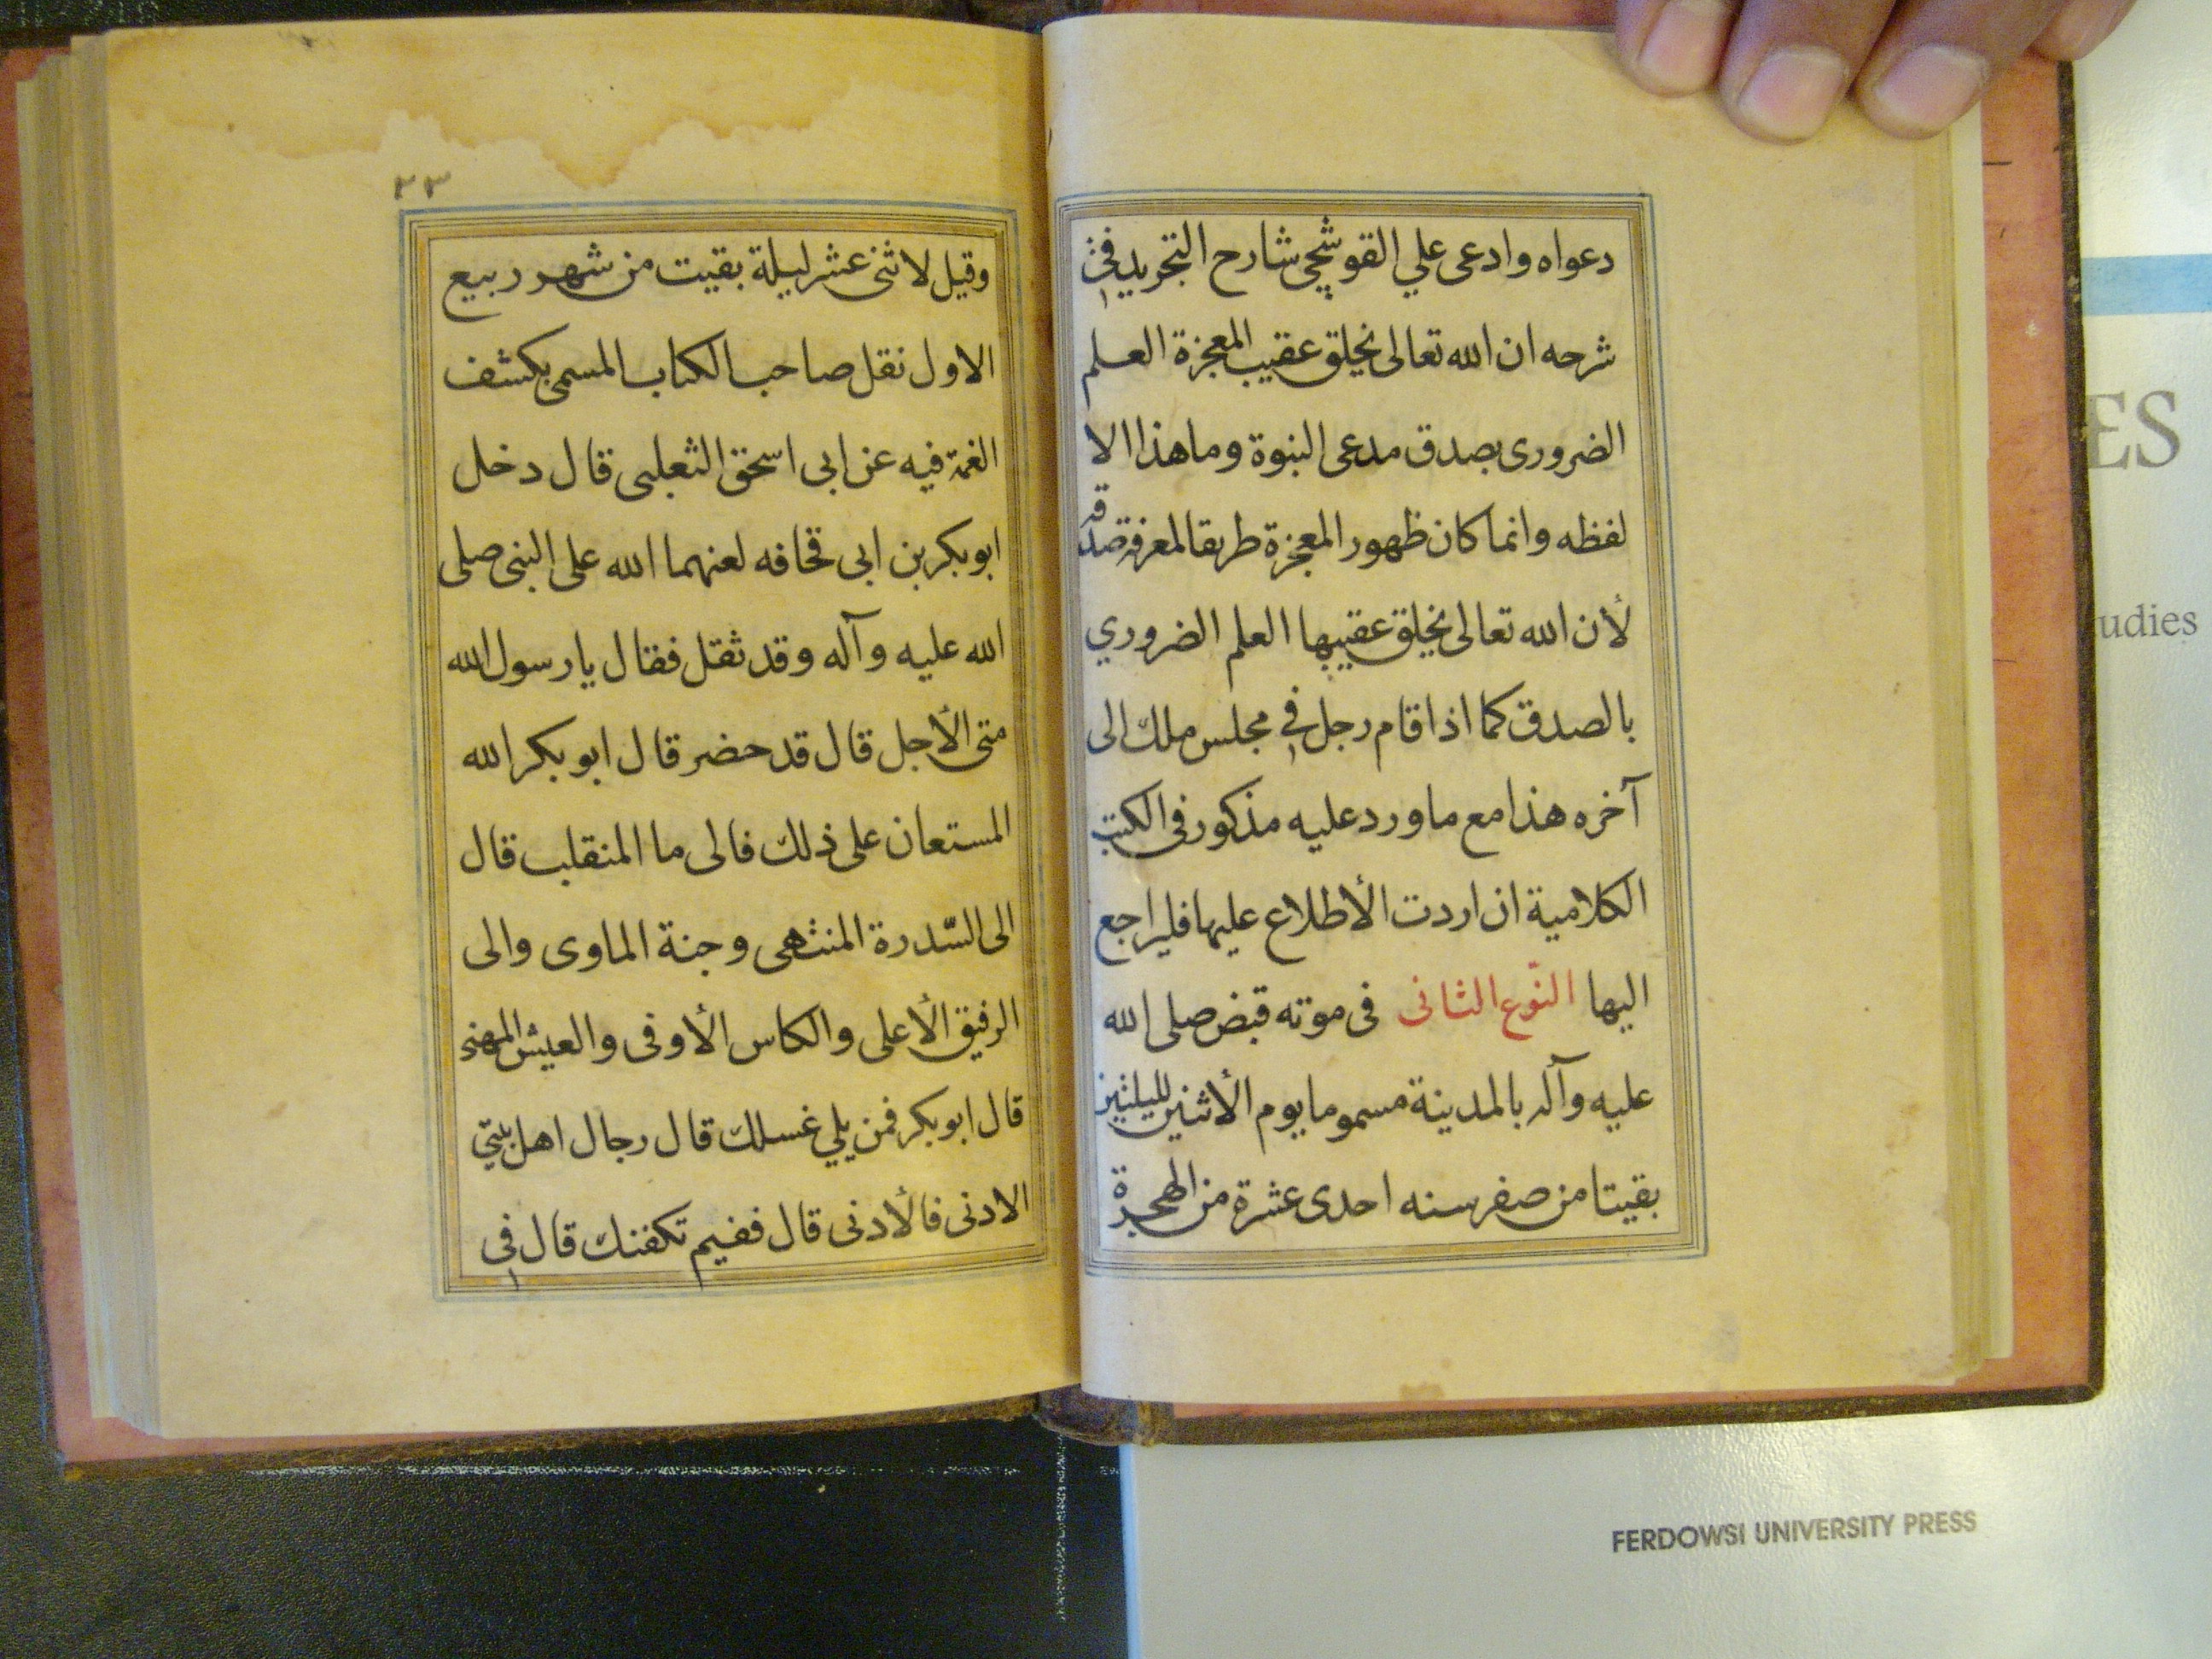 دعواه وادعى علي القوشجي شارح التجريد في
شرحه ان الله تعالى يخلق عقيب المعجزة العلم
الضرورى بصدق مدعى النبوة وما هذا الا
لفظه وانما كان ظهور المعجزة طريقا لمعرفة صدقه
لأن الله تعالى يخلق عقيبها العلم الضروري
بالصدق كما اذا قام رجل في مجلس ملك الى
آخره هذا مع ما ورد عليه مذكور فى الكتب
الكلامية ان اردت الأطلاع عليها فليراجع
اليها النّوع الثانى فى موته قبض صلى الله
عليه وآله بالمدينة مسموما يوم الأثنين لليلتين
بقيتا من صفر سنه احدى عشرة من الهجرة
٢٣
وقيل لاثنى عشر ليلة بقيت من شهر ربيع
الاول نقل صاحب الكتاب المسمى بكشف
الغمة فيه عن ابى اسحق الثعلبى قال دخل
ابو بكر بن ابى قحافه لعنهما الله على النبى صلى
الله عليه وآله وقد ثقل فقال يا رسول الله
متى الأجل قال قد حضر قال ابو بكر الله
المستعان على ذلك فالى ما المنقلب قال
الى السّدرة المنتهى وجنة الماوى والى
الرفيق الأعلى والكاس الأوفى والعيش المهنى
قال ابو بكر فمن يلي غسلك قال رجال اهل بيتي
الادنى فالأدنى قال ففيم تكفنك قال في
ES
udies
FERDOWSI UNIVERSITY PRESS